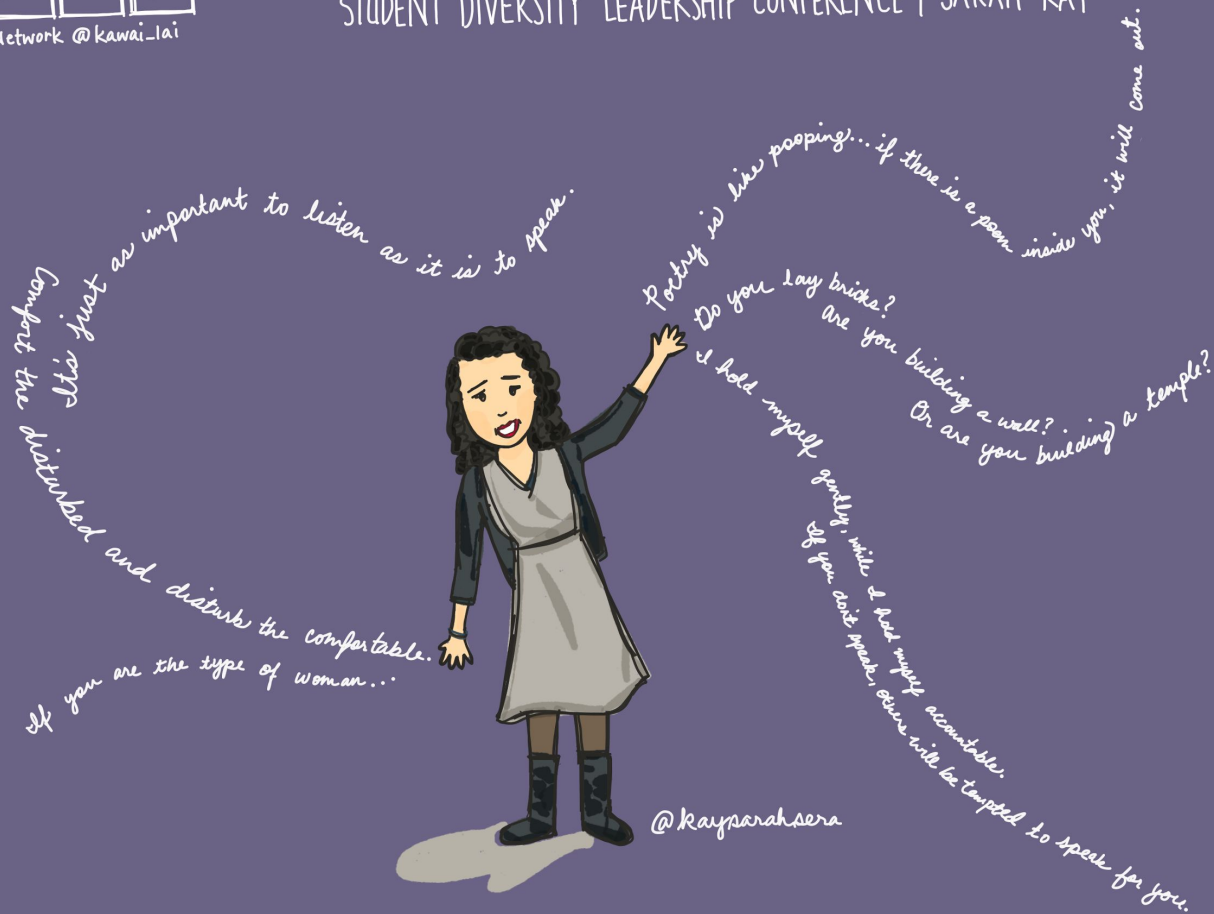 STUDENT DIVERSITY LEADERSHIP CONFERENCE | SARAH KAY
@kawai_lai
It's just as important to listen as it is to speak.
Comfort the disturbed and disturb the comfortable.
If you are the type of woman...
Poetry is like pooping... if there is a poem inside you, it will come out.
Do you lay bricks?
Are you building a wall?
Or are you building a temple?
I hold myself gently, while I hold myself accountable.
If you don't speak, others will be tempted to speak for you.
@kaysarahsera